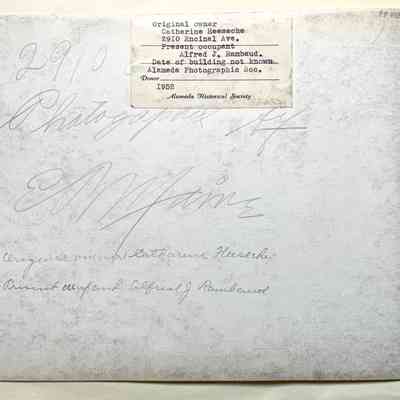 Original owner
Catherine Heesche
2910 Encinal Ave.
Present occupant
Alfred J. Rambaud.
Date of building not known
Alameda Photographic Soc.
Donor
1952
Alameda Historical Society
29
Photographed by
Original owner Catharine Heesche
Present occupant Alfred J Rambaud